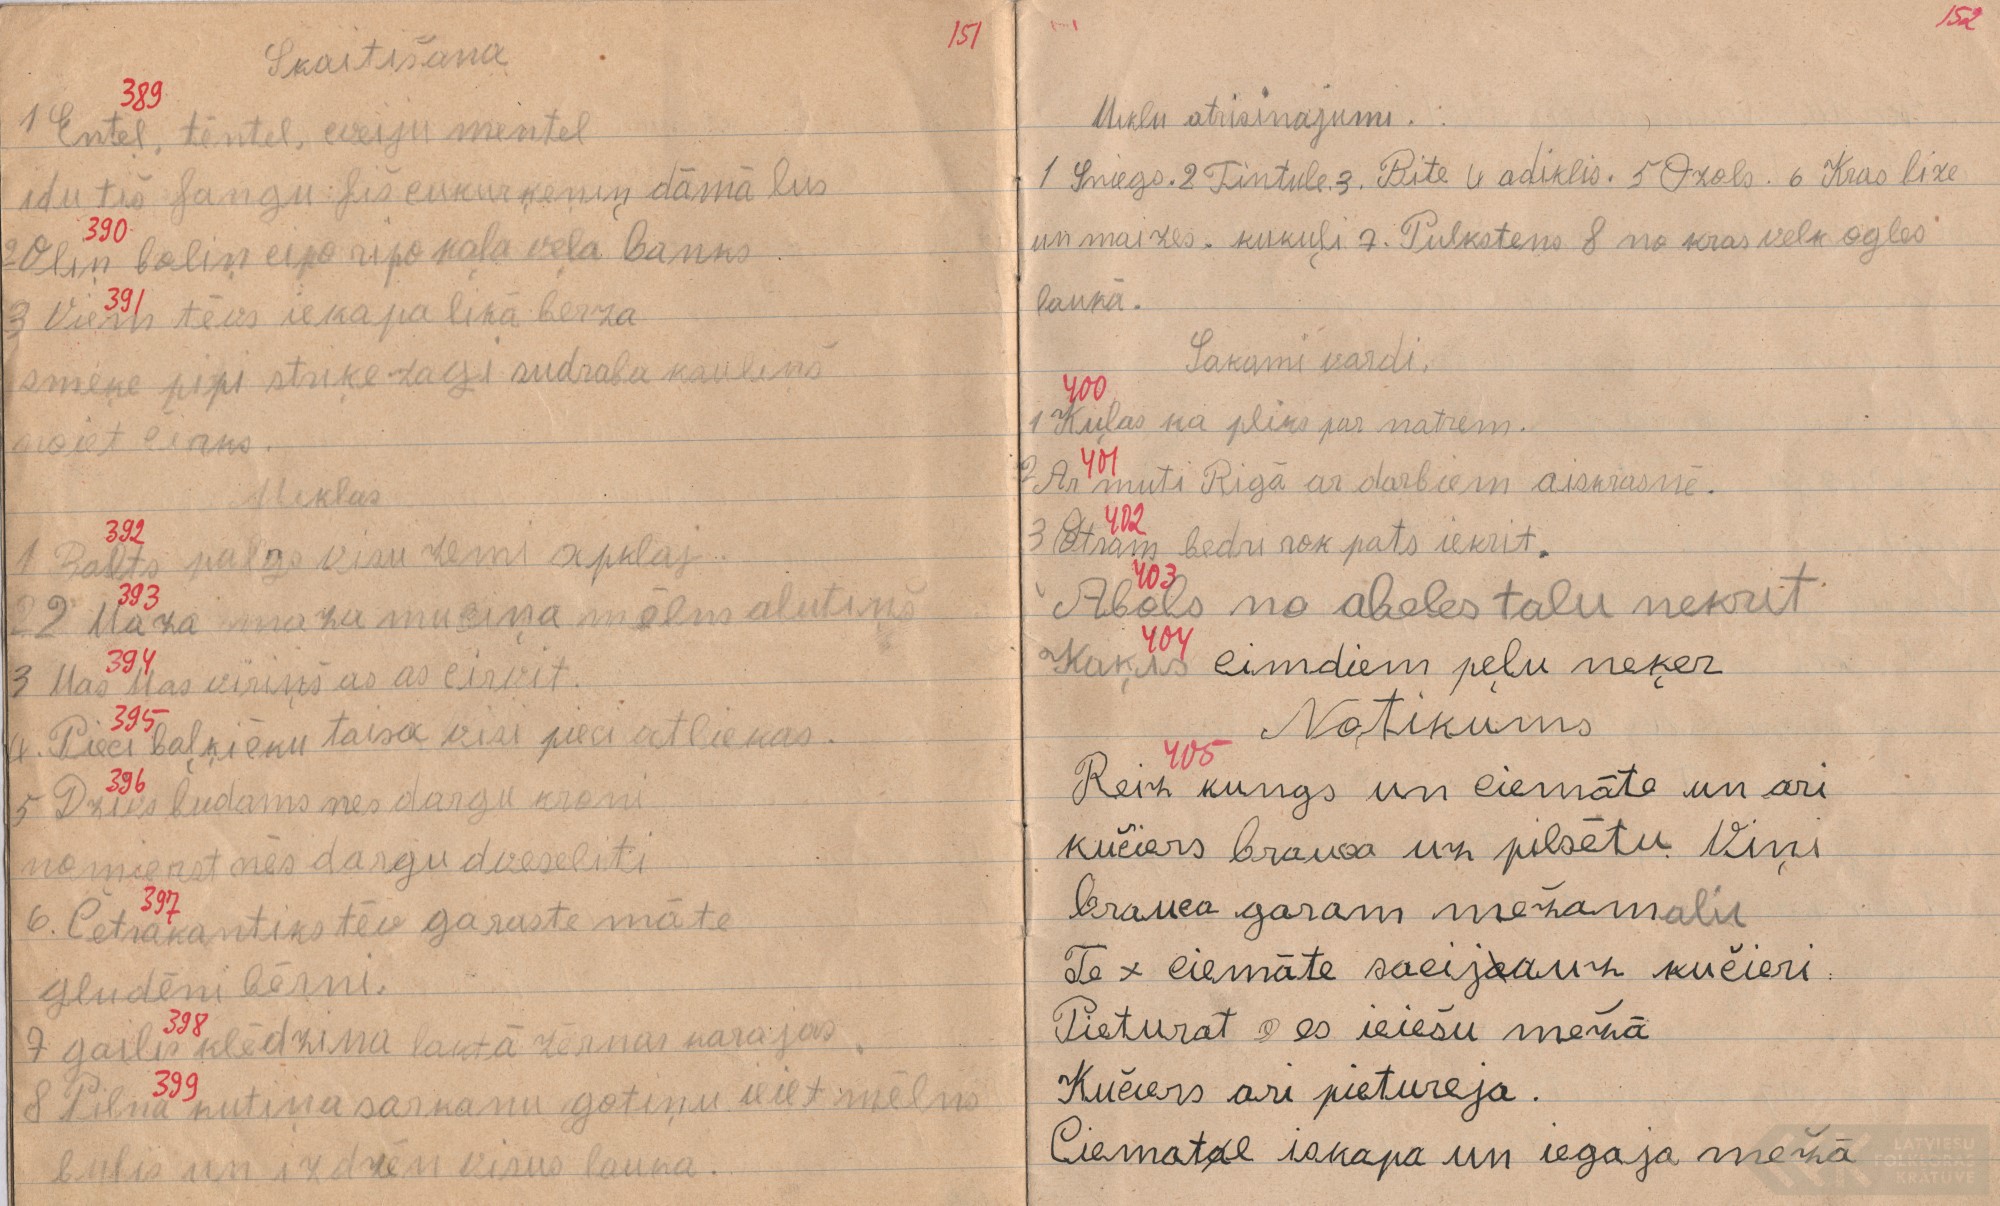 151
Skaitišana
389
1 Entel, tentel, cveiju mentel
idu tis fangu fiš cukurķeniņ dāmā lus
390
2 Oliņ boliņ cipo ripo kaļa veļa banks
391
3 Viem tēvs iekapa likā berza
smeķe pipi struķe zagi sudraba kauliņš
aiziet cinks.
Meklas
392
1 Balts palags visu zemi apklaj.
393
2 2 Maza maza muciņa mēlns alutiņš
394
3 Mas Mas viriņš as as cirvit.
395
4. Pieci baļķiēku taisa visi pieci atliekas.
396
5 Dzivs budams nes dargu kroni
nomierst nēs dargu dveseliti
397
6. Četrakantiks tēv garaste māte
gludēni bērni.
398
7 gailis klēdzina laktā zērnas karajas.
399
8 Pilna kutiņa sarkanu gotiņu ieiet mēlns
bulis un izdzēn visus lauka.
152
Meklu atrisinajumi.
1 Sniegs. 2 Tintule. 3. Bite 4 adiklis. 5 Ozols. 6 Kras lize
un maizes. kukuļi 7. Pulkstens 8 no kras velk ogles
laukā.
Sakami vardi.
400
1 Kuļas ka pliks par natrem.
401
2 Ar muti Rigā ar darbiem aiskrasnē.
402
3 Otram bedru rok pats iekrit.
403
Abols no abeles talu nekrit
404
Kaķis cimdiem peļu neķer
Notikums
405
Reiz kungs un ciemāte un ari
kučiers brauca uz pilsētu. Viņi
brauca garam mežamalu
Te x ciemāte sacija uz kučieri:
Pieturat es ieiešu mežā
Kučiers ari pietureja.
Ciemate iskapa un iegaja mežā
LATVIEŠU
FOLKLORAS
KRĀTUVE